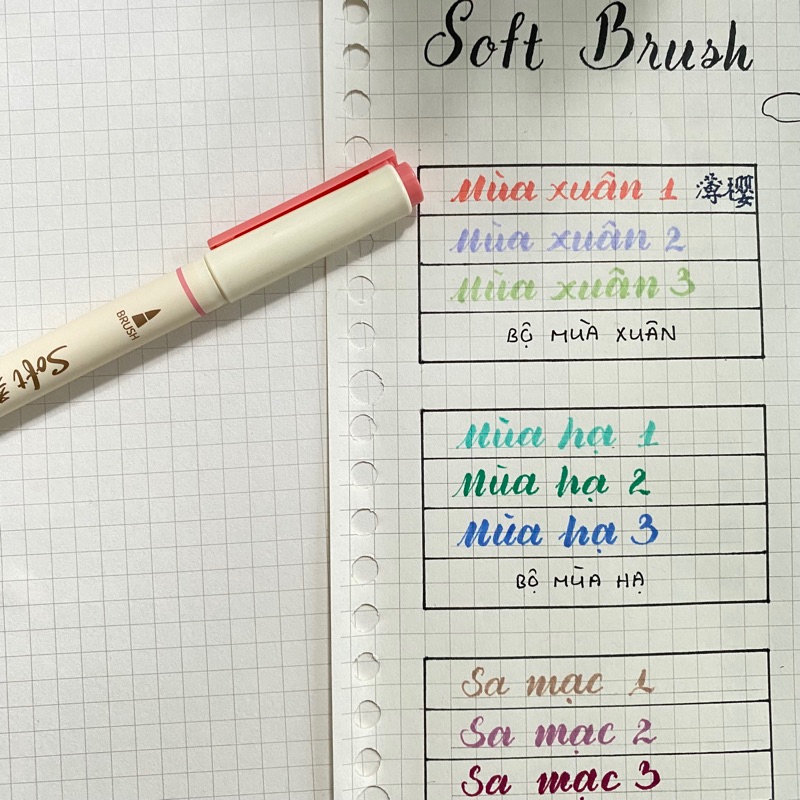 Soft Brush
Mùa xuân 1 薄樱
Mùa xuân 2
Mùa xuân 3
BỘ MÙA XUÂN
Mùa hạ 1
Mùa hạ 2
Mùa hạ 3
BỘ MÙA HẠ
Sa mạc 1
Sa mạc 2
Sa mạc 3
BRUSH
Soft